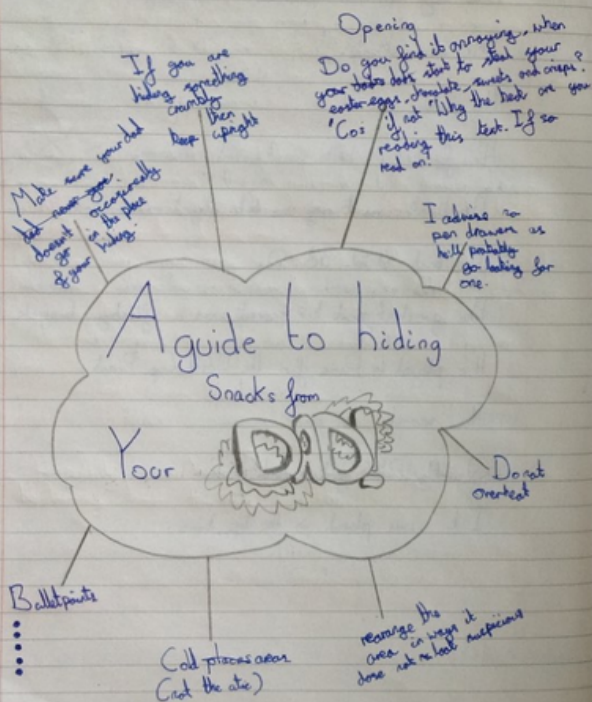 Opening
Do you find it annoying, when
your dads start to steal your
easter eggs, chocolate, sweets and crisps?
'Cos if not "Why the heck are you
reading this text. If so
read on!
If you are
hiding something
crumbly
then
keep upright
Make sure your dad
doesnt occasionally
go in the place
of your hiding.
I advise no
pen drawers as
he'll probably
go looking for
one.
A guide to hiding
Snacks from
Your DAD!
Do not
overheat
Bulletpoints
Cold places areas
(not the attic)
rearange the
area in ways it
dose not look suspicious